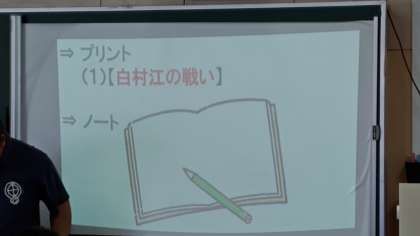 ⇒ プリント
(1)【白村江の戦い】
⇒ ノート